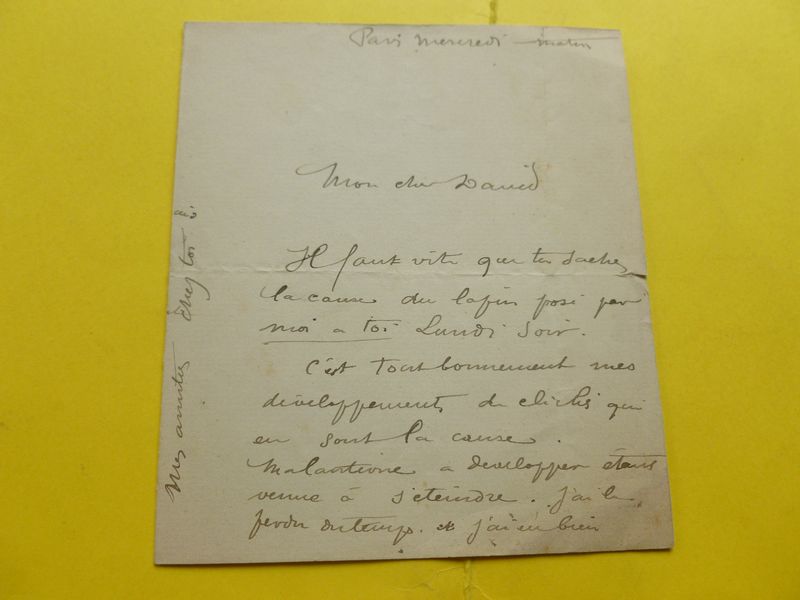 Paris Mercredi matin
Mon cher David
Il faut vite que tu saches
la cause du lapin posé par
moi a toi Lundi Soir.
C'est tout bonnement mes
développements de clichés qui
en sont la cause.
Ma lanterne a développer étant
venue à s'éteindre. J'ai
perdu du temps. et j'ai eu bien
Mes amitiés chez toi